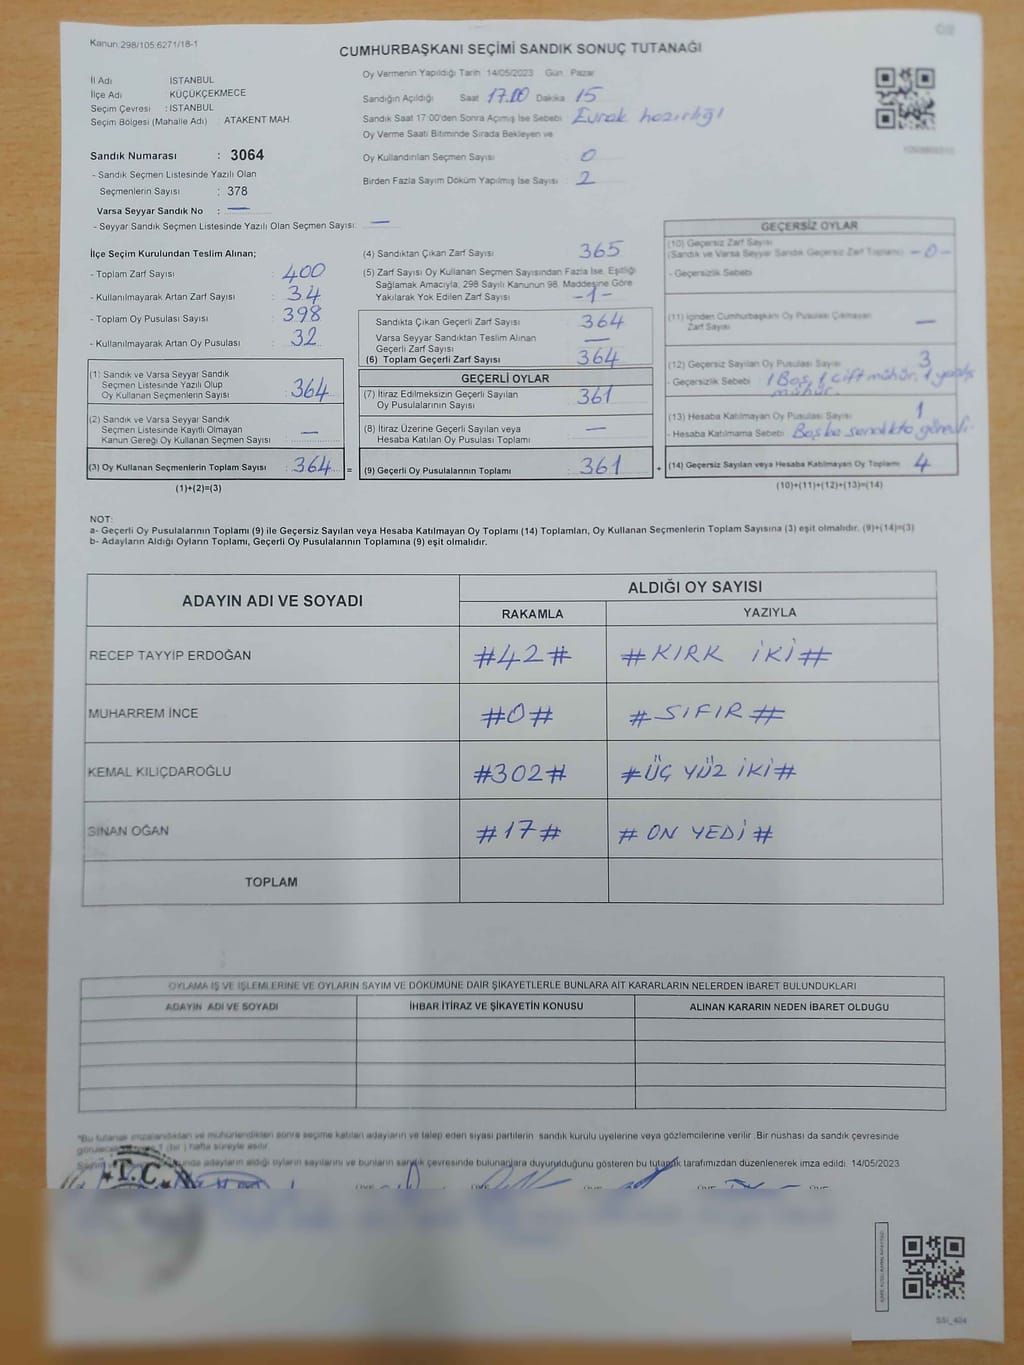 Kanun:298/105;6271/18-1
CUMHURBAŞKANI SEÇİMİ SANDIK SONUÇ TUTANAĞI
İl Adı : İSTANBUL
İlçe Adı : KÜÇÜKÇEKMECE
Seçim Çevresi : İSTANBUL
Seçim Bölgesi (Mahalle Adı) : ATAKENT MAH.
Oy Vermenin Yapıldığı Tarih 14/05/2023 Gün Pazar
Sandığın Açıldığı Saat 17.00 Dakika 15
Sandık Saat 17:00'den Sonra Açımış İse Sebebi Evrak hazırlığı
Oy Verme Saati Bitiminde Sırada Bekleyen ve
Oy Kullandırılan Seçmen Sayısı 0
Birden Fazla Sayım Döküm Yapılmış İse Sayısı : 2
Sandık Numarası : 3064
- Sandık Seçmen Listesinde Yazılı Olan
Seçmenlerin Sayısı : 378
Varsa Seyyar Sandık No : —
- Seyyar Sandık Seçmen Listesinde Yazılı Olan Seçmen Sayısı: —
İlçe Seçim Kurulundan Teslim Alınan;
- Toplam Zarf Sayısı : 400
- Kullanılmayarak Artan Zarf Sayısı : 34
- Toplam Oy Pusulası Sayısı : 398
- Kullanılmayarak Artan Oy Pusulası : 32
(1) Sandık ve Varsa Seyyar Sandık
Seçmen Listesinde Yazılı Olup
Oy Kullanan Seçmenlerin Sayısı : 364
(2) Sandık ve Varsa Seyyar Sandık
Seçmen Listesinde Kayıtlı Olmayan
Kanun Gereği Oy Kullanan Seçmen Sayısı : —
(3) Oy Kullanan Seçmenlerin Toplam Sayısı : 364 =
(1)+(2)=(3)
(4) Sandıktan Çıkan Zarf Sayısı 365
(5) Zarf Sayısı Oy Kullanan Seçmen Sayısından Fazla İse, Eşitliği
Sağlamak Amacıyla, 298 Sayılı Kanunun 98. Maddesine Göre
Yakılarak Yok Edilen Zarf Sayısı -1-
Sandıkta Çıkan Geçerli Zarf Sayısı : 364
Varsa Seyyar Sandıktan Teslim Alınan
Geçerli Zarf Sayısı : —
(6) Toplam Geçerli Zarf Sayısı : 364
GEÇERLİ OYLAR
(7) İtiraz Edilmeksizin Geçerli Sayılan
Oy Pusulalarının Sayısı : 361
(8) İtiraz Üzerine Geçerli Sayılan veya
Hesaba Katılan Oy Pusulası Toplamı : —
(9) Geçerli Oy Pusulalarının Toplamı : 361 +
GEÇERSİZ OYLAR
(10) Geçersiz Zarf Sayısı
(Sandık ve Varsa Seyyar Sandık Geçersiz Zarf Toplamı) -0-
- Geçersizlik Sebebi
(11) İçinden Cumhurbaşkanı Oy Pusulası Çıkmayan
Zarf Sayısı —
(12) Geçersiz Sayılan Oy Pusulası Sayısı 3
- Geçersizlik Sebebi : 1 Boş, 1 çift mühür, 1 yanlış
mühür.
(13) Hesaba Katılmayan Oy Pusulası Sayısı 1
- Hesaba Katılmama Sebebi Başka sandıkta görevli.
(14) Geçersiz Sayılan veya Hesaba Katılmayan Oy Toplamı 4
(10)+(11)+(12)+(13)=(14)
NOT:
a- Geçerli Oy Pusulalarının Toplamı (9) ile Geçersiz Sayılan veya Hesaba Katılmayan Oy Toplamı (14) Toplamları, Oy Kullanan Seçmenlerin Toplam Sayısına (3) eşit olmalıdır. (9)+(14)=(3)
b- Adayların Aldığı Oyların Toplamı, Geçerli Oy Pusulalarının Toplamına (9) eşit olmalıdır.
ADAYIN ADI VE SOYADI
ALDIĞI OY SAYISI
RAKAMLA YAZIYLA
RECEP TAYYİP ERDOĞAN #42# #KIRK İKİ#
MUHARREM İNCE #0# #SIFIR#
KEMAL KILIÇDAROĞLU #302# #ÜÇ YÜZ İKİ#
SİNAN OĞAN #17# #ON YEDİ#
TOPLAM
OYLAMA İŞ VE İŞLEMLERİNE VE OYLARIN SAYIM VE DÖKÜMÜNE DAİR ŞİKAYETLERLE BUNLARA AİT KARARLARIN NELERDEN İBARET BULUNDUKLARI
ADAYIN ADI VE SOYADI İHBAR İTİRAZ VE ŞİKAYETİN KONUSU ALINAN KARARIN NEDEN İBARET OLDUĞU
"Bu tutanak imzalandıktan ve mühürlendikten sonra seçime katılan adayların ve talep eden siyasi partilerin sandık kurulu üyelerine veya gözlemcilerine verilir. Bir nushası da sandık çevresinde
1 (bir) hafta süreyle asılır.
adayların aldığı oyların sayılarını ve bunların sandık çevresinde bulunanlara duyurulduğunu gösteren bu tutanak tarafımızdan düzenlenerek imza edildi. 14/05/2023
T.C.
SSI_404